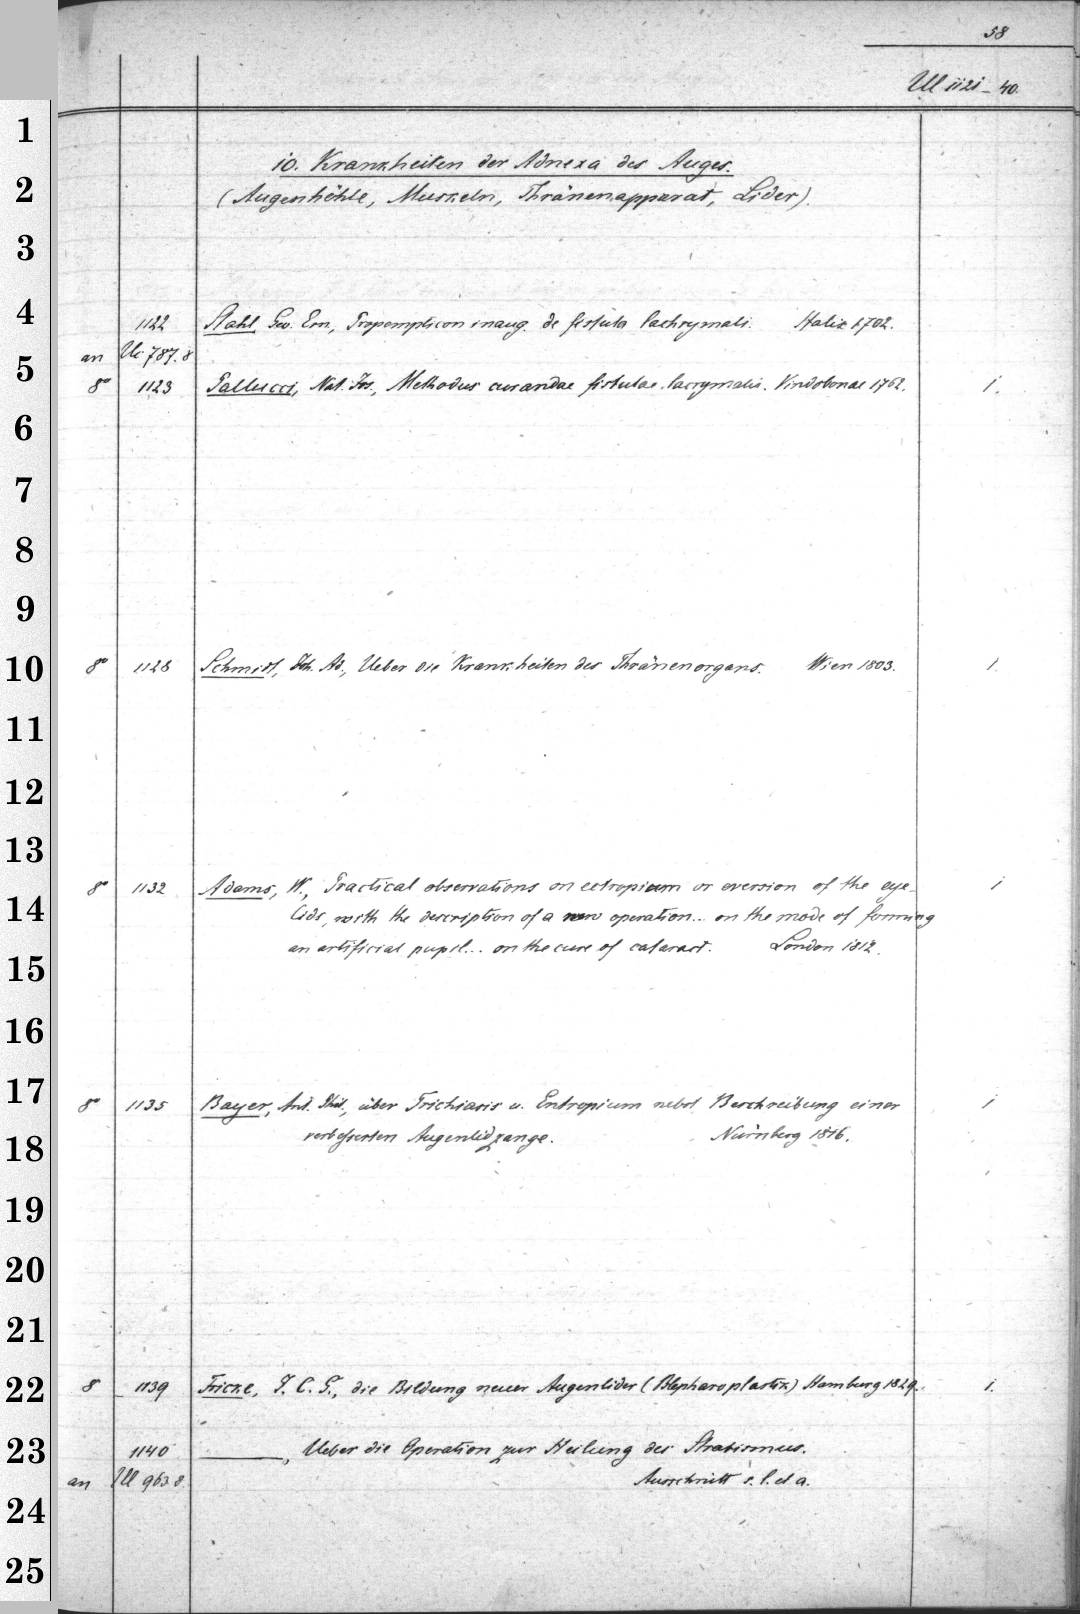 58
Ul 1121-40.
1
10. Krankheiten der Adnexa des Auges.
2
(Augenhöhle, Muskeln, Thränenapparat, Lider).
3
4
1122 Stahl, Geo. Ern., Propempticon inaug. de fistula lachrymali. Halix 1702.
an Uc 787. 8
5
8° 1123 Pallucci, Nat. Jos., Methodus curandae fistulae lacrymalis. Vindobonae 1762. 1.
6
7
8
9
10
8° 1128 Schmidt, Joh. Ad., Ueber die Krankheiten des Thränenorgans. Wien 1803. 1.
11
12
13
8° 1132 Adams, W., Practical observations on ectropium or eversion of the eye- 1
14
lids, with the description of a new operation... on the mode of forming
an artificial pupil... on the cure of cataract. London 1812.
15
16
17
8° 1135 Bayer, Ant. Phil., über Trichiasis u. Entropium nebst Beschreibung einer 1
verbesserten Augenlidzange. Nürnberg 1816.
18
19
20
21
22
8 1139 Fricke, J. C. G., die Bildung neuer Augenlider (Blepharoplastik) Hamburg 1829. 1.
23
1140 ———, Ueber die Operation zur Heilung des Strabismus.
an Ul 963. 8. Ausschnitt s. l. et a.
24
25